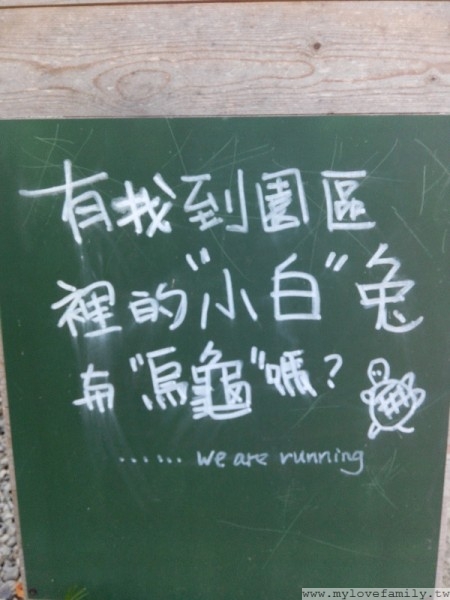 有找到園區
裡的"小白"兔
有"烏龜"嗎?
...... we are running
www.mylovefamily.tw